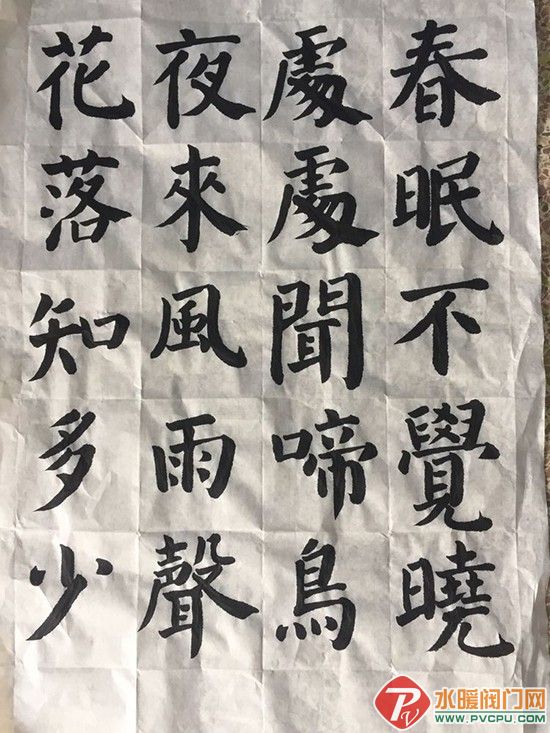 春眠不覺曉
處處聞啼鳥
夜來風雨聲
花落知多少
PV
水暖阀门网
www.PVCPU.com